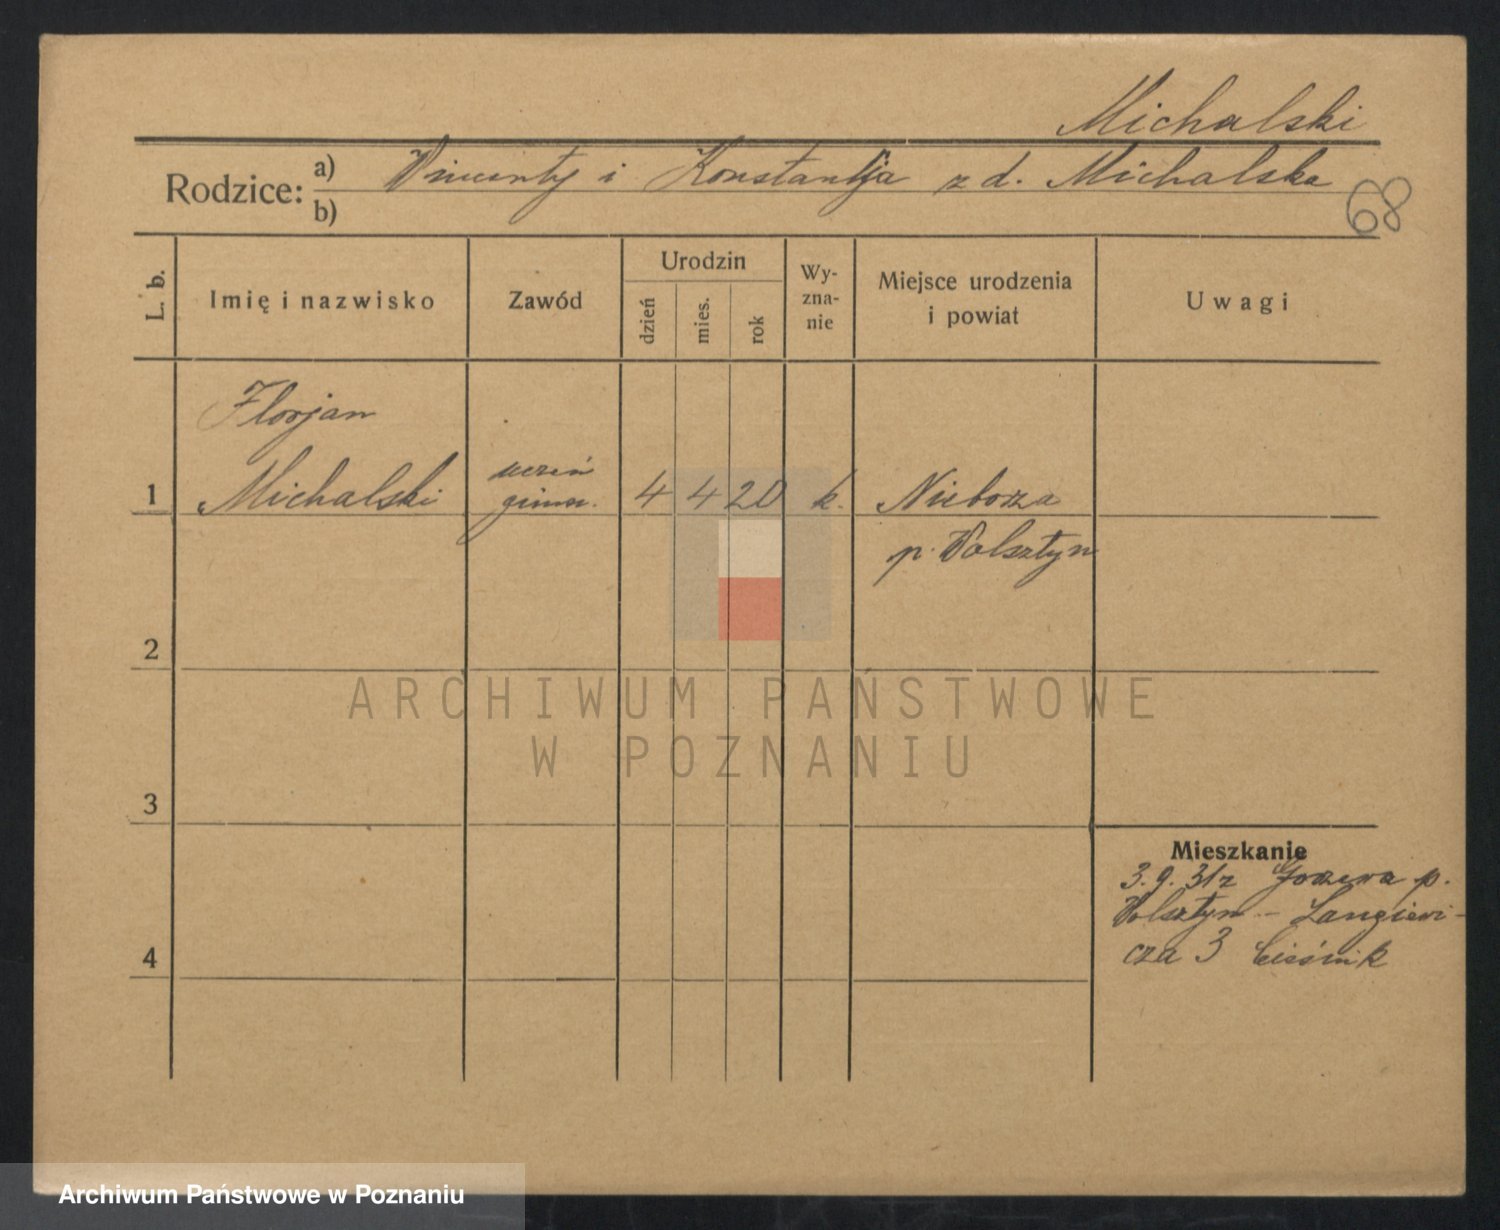 Michalski
Rodzice: a) Wincenty i Konstantja z d. Michalska
b)
68
L. b.
Imię i nazwisko
Zawód
Urodzin
dzień
mies.
rok
Wy-
zna-
nie
Miejsce urodzenia
i powiat
Uwagi
Florjan
1 Michalski uczeń gimn. 4 4 20 k. Nieborza
p. Wolsztyn
2
3
4
Mieszkanie
3.9.31 z p.
Wolsztyn - Langiewi-
cza 3
ARCHIWUM PAŃSTWOWE
W POZNANIU
Archiwum Państwowe w Poznaniu